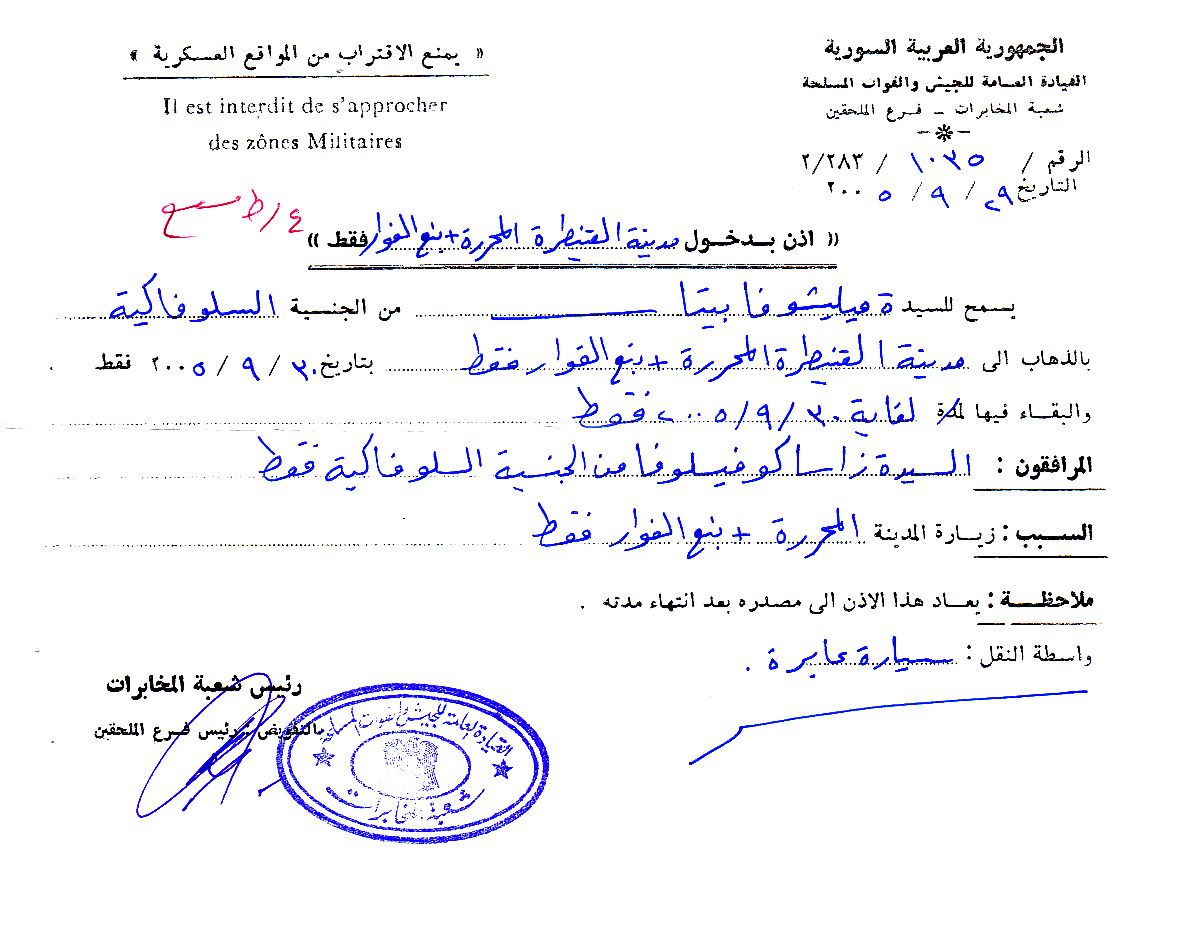 الجمهورية العربية السورية
القيادة العامة للجيش والقوات المسلحة
شعبة المخابرات - فرع الملحقين
الرقم / ١٠٣٥ / ٢/٢٨٣
التاريخ ٢٩ / ٩ / ٢٠٠٥
« يمنع الاقتراب من المواقع العسكرية »
Il est interdit de s'approcher
des zônes Militaires
٤/ط
« اذن بدخول مدينة القنيطرة المحررة + بنع الفوار فقط »
يسمح للسيدة ميليشوفا بيتا من الجنسية السلوفاكية
بالذهاب الى مدينة القنيطرة المحررة + بنع الفوار فقط بتاريخ ٣٠ / ٩ / ٢٠٠٥ فقط
والبقاء فيها لمدة لغاية ٣٠ / ٩ / ٢٠٠٥ فقط
المرافقون : السيدة زاساكوفيلوفا من الجنسية السلوفاكية فقط
السبب : زيارة المدينة المحررة + بنع الفوار فقط
ملاحظة : يعاد هذا الاذن الى مصدره بعد انتهاء مدته .
واسطة النقل : سيارة عابرة .
رئيس شعبة المخابرات
بالتفويض : رئيس فرع الملحقين
القيادة العامة للجيش والقوات المسلحة
شعبة المخابرات